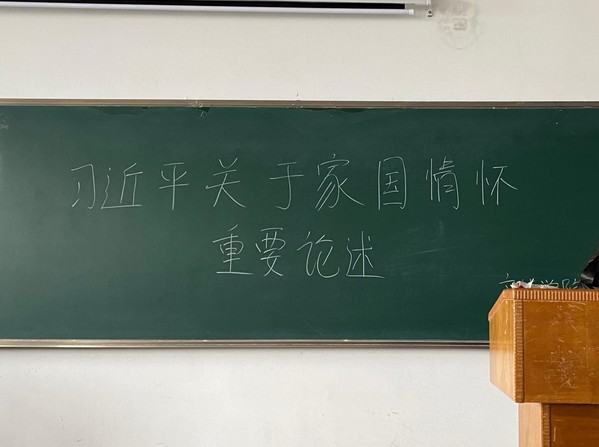 习近平关于家国情怀
重要论述